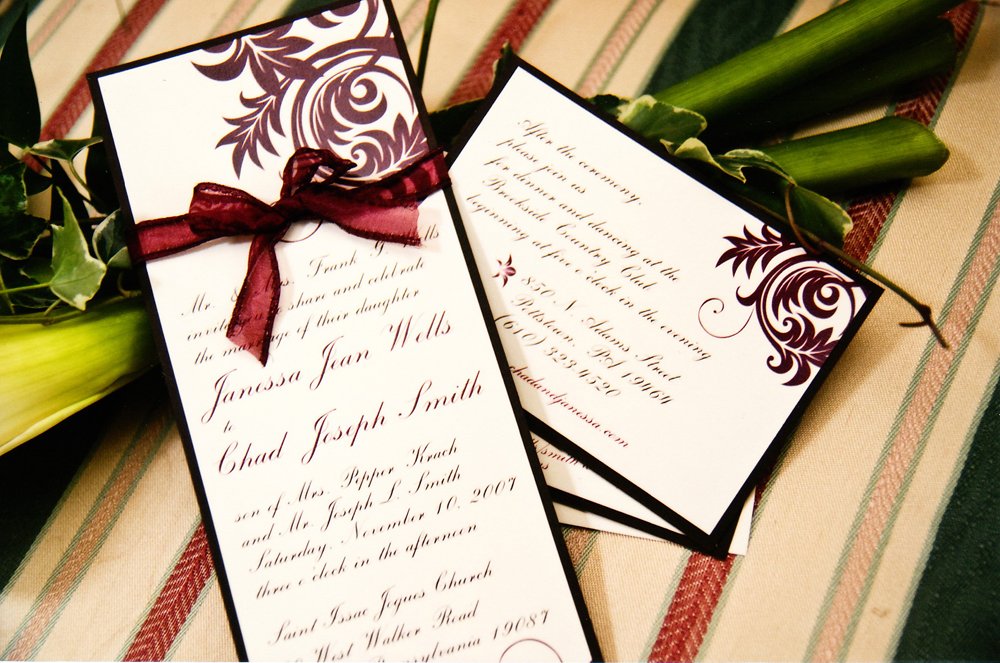 Mr. & Frank G. Wells
invite share and celebrate
the marriage of their daughter
Janessa Jean Wells
to
Chad Joseph Smith
son of Mrs. Pepper Krach
and Mr. Joseph L. Smith
Saturday, November 10, 2007
three o'clock in the afternoon
Saint Issac Jogues Church
West Walker Road
Pennsylvania 19087
After the ceremony,
please join us
for dinner and dancing at the
Brookside Country Club
beginning at five o'clock in the evening
850 N. Adams Street
Pottstown, PA 19464
(610) 323-4520
chadandjanessa.com